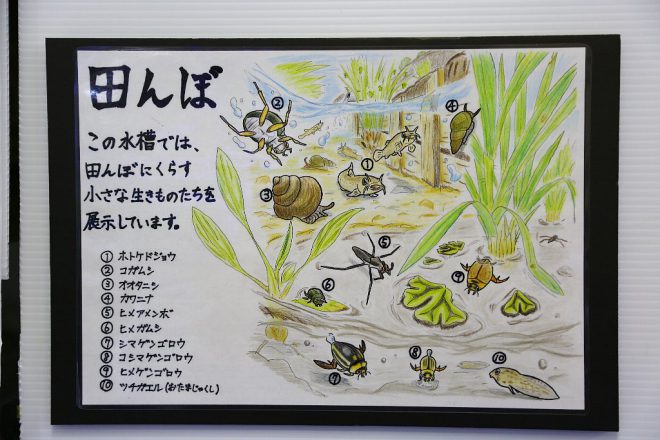 田んぼ
この水槽では、
田んぼにくらす
小さな生きものたちを
展示しています。
① ホトケドジョウ
② コガムシ
③ オオタニシ
④ カワニナ
⑤ ヒメアメンボ
⑥ ヒメガムシ
⑦ シマゲンゴロウ
⑧ コシマゲンゴロウ
⑨ ヒメゲンゴロウ
⑩ ツチガエル(おたまじゃくし)
②
④
①
③
⑤
⑨
⑥
⑦
⑧
⑩